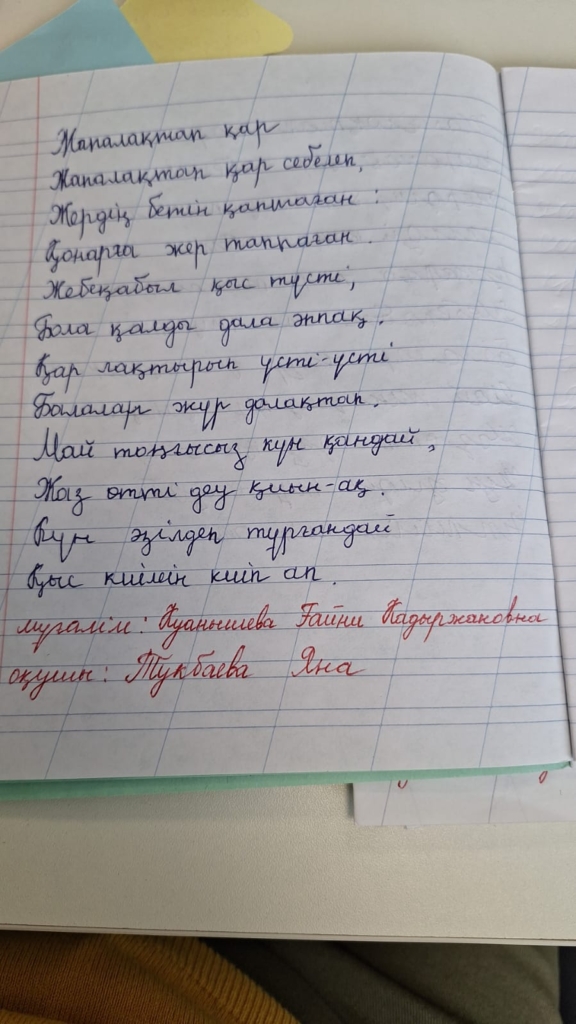 Жапалақтап қар
Жапалақтап қар себелеп,
Жердің бетін қаптаған :
Қонарға жер таппаған.
Жебеқабыл қыс түсті,
Бола қалды дала әппақ.
Қар лақтырып үсті-үсті
Балалар жүр далақтап.
Май тоңғысыз күн қандай,
Жаз өтті деу қиын-ақ.
Күн әзілдеп тұрғандай
Қыс киімін киіп ап.
мұғалім: Куанышева Гайни Кадыржановна
оқушы: Тукбаева Яна